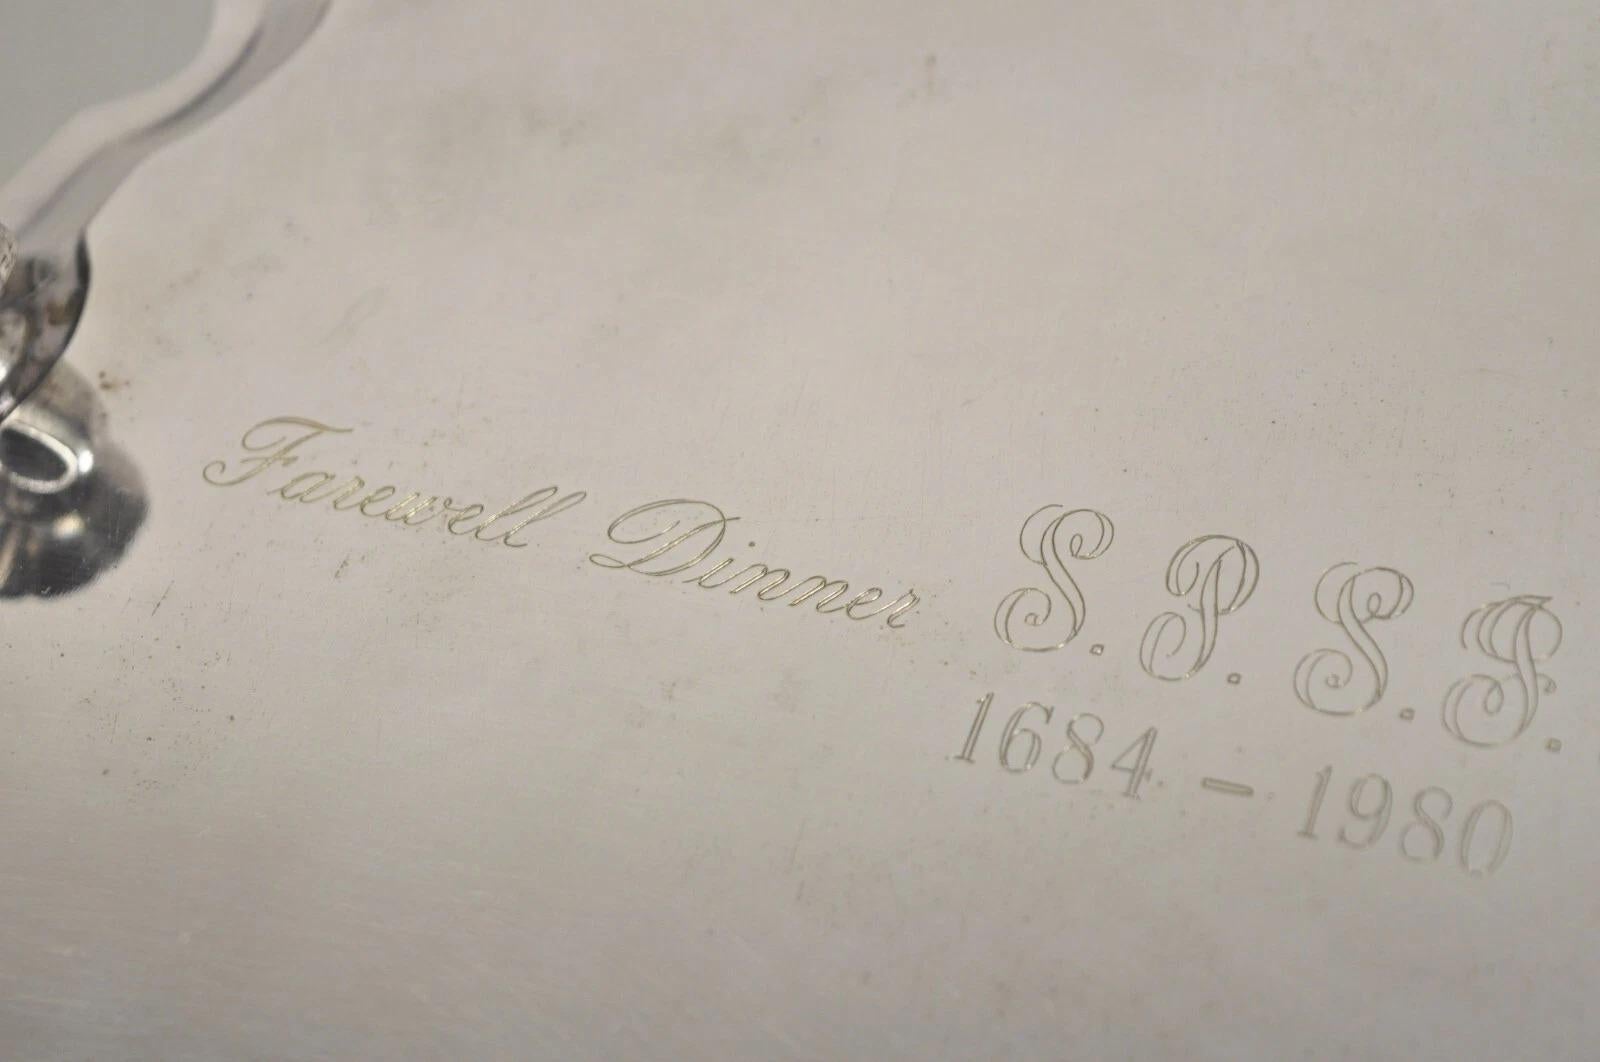 Farewell Dinner S. P. S. F.
1684 - 1980